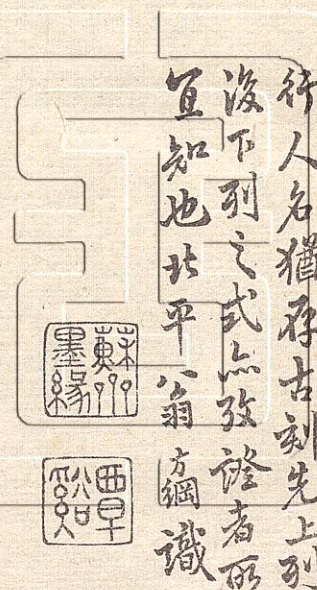 行人名猶存古刻先上列
後下列之式亦攷證者所
宜知也北平翁方綱識
蘇州墨緣
覃谿